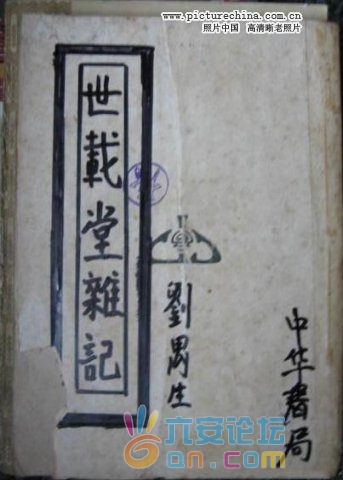 www.picturechina.com.cn
照片中国 高清晰老照片
世載堂雜記
劉禺生
中华書局
六安论坛
6an.com